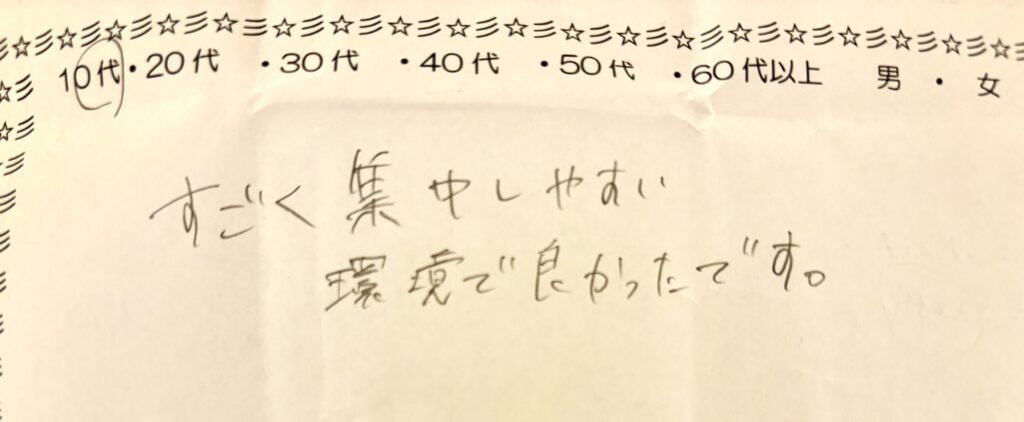 10代・20代 ・30代 ・40代 ・50代 ・60代以上 男 ・ 女
すごく集中しやすい
環境で良かったです。